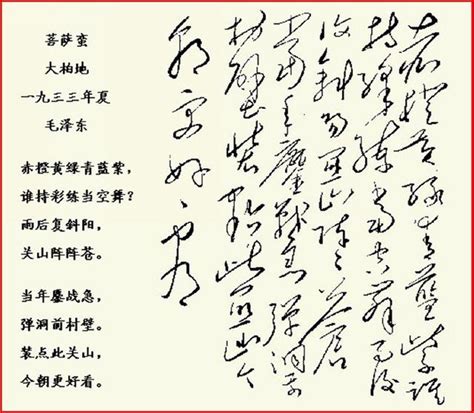 菩萨蛮
大柏地
一九三三年夏
毛泽东
赤橙黄绿青蓝紫，
谁持彩练当空舞？
雨后复斜阳，
关山阵阵苍。
当年鏖战急，
弹洞前村壁。
装点此关山，
今朝更好看。
赤橙黄绿青藍紫谁
持彩练当空舞雨后
复斜阳关山阵々苍
当年鏖战急弹洞前
村壁装点此关山今
朝更好看